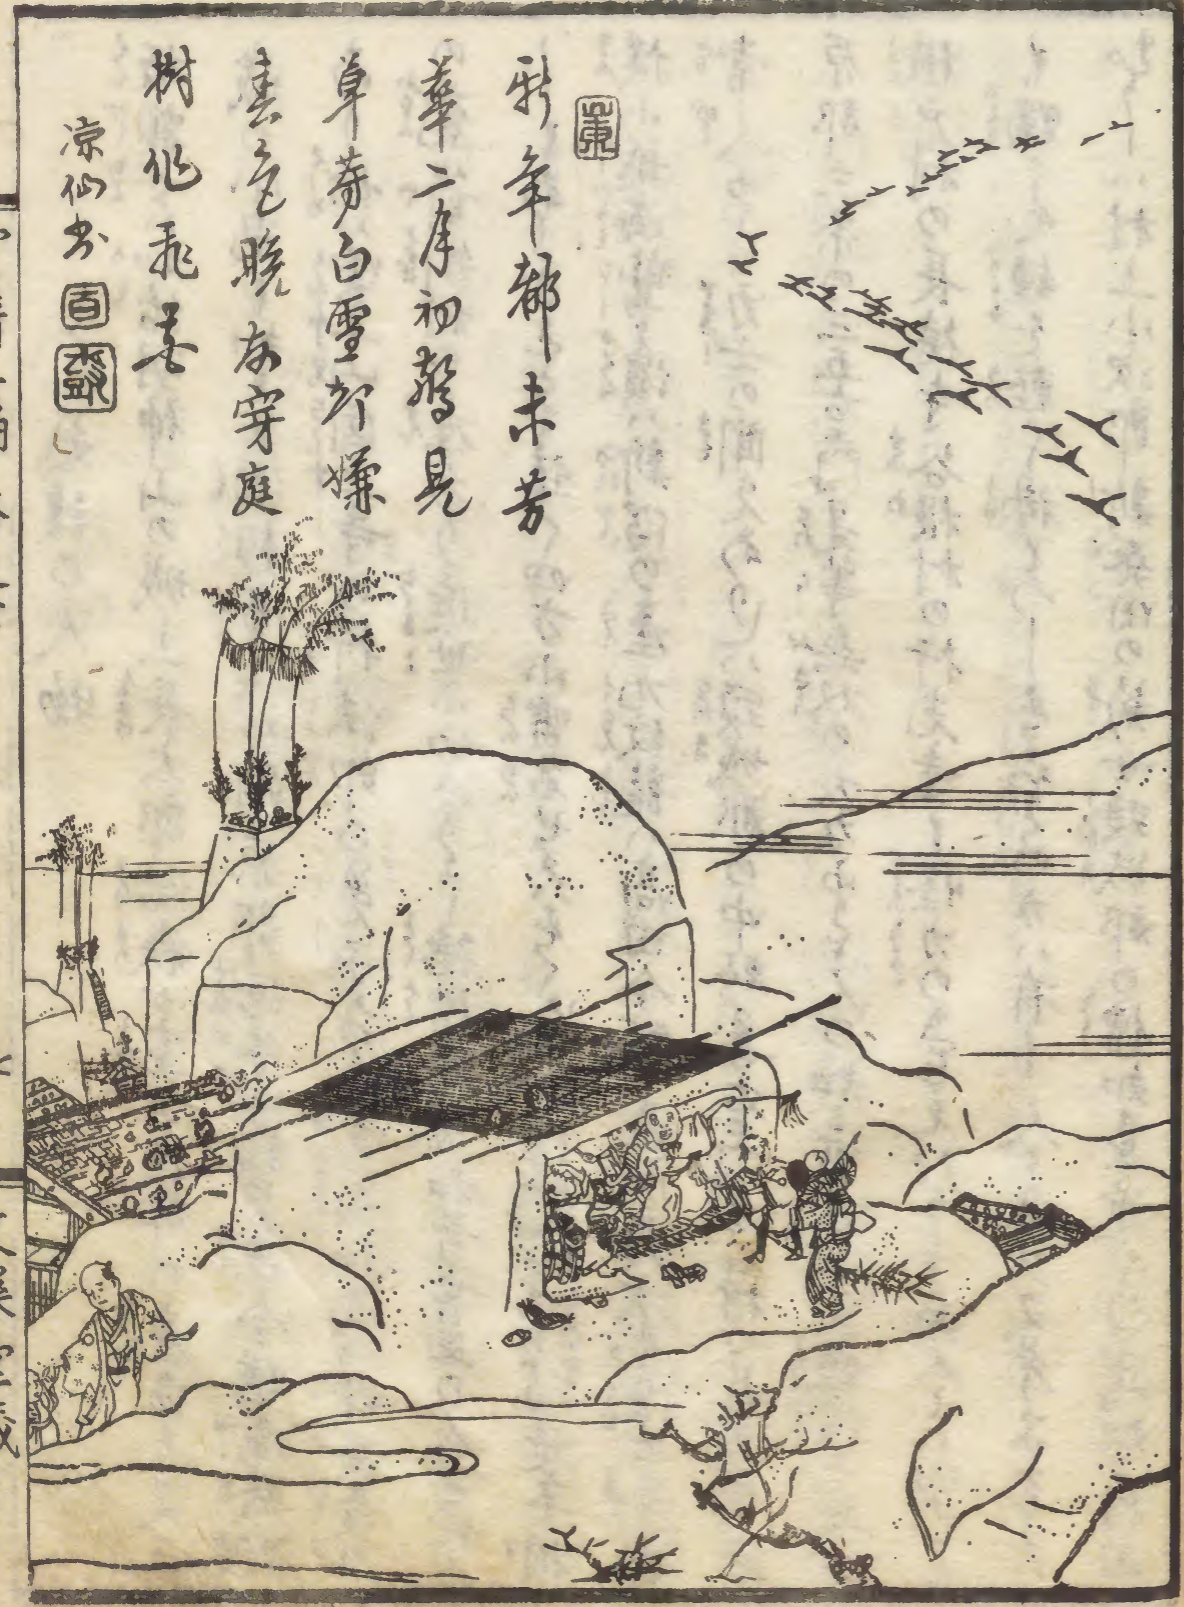 新年都未芳
華二月初驚見
草芽白雪却嫌
春色晩故穿庭
樹作飛花
凉仙書